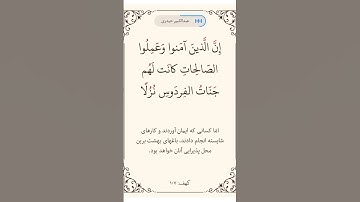 عبدالکبیر حیدری
إِنَّ الَّذينَ آمَنوا وَعَمِلُوا
الصّالِحاتِ كانَت لَهُم
جَنّاتُ الفِردَوسِ نُزُلًا
امّا کسانی که ایمان آوردند و کارهای
شایسته انجام دادند، باغهای بهشت برین
محل پذیرایی آنان خواهد بود.
کهف: ۱۰۷